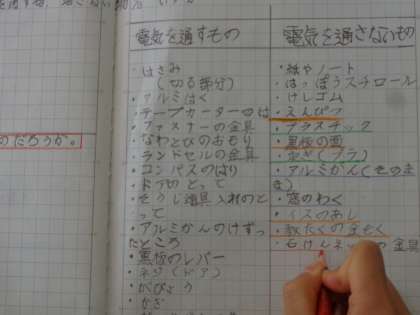 のだろうか。
電気を通すもの
・はさみ
（切る部分）
・アルミはく
・テープカーターのは
・ファスナーの金具
・なわとびのおもり
・ランドセルの金具
・コンパスのはり
・ドアのとって
・そうじ道具入れのと
って
・アルミかんのけずっ
たところ
・黒板のレバー
・ネジ（ドア）
・がびょう
・かぎ
電気を通さないもの
・紙やノート
・はっぽうスチロール
・けしゴム
・えんぴつ
・プラスチック
・黒板の面
・定ぎ（プラ）
・アルミかん（そのま
ま）
・窓のわく
・イスのあし
・金ぞく
・石けんネットの金具